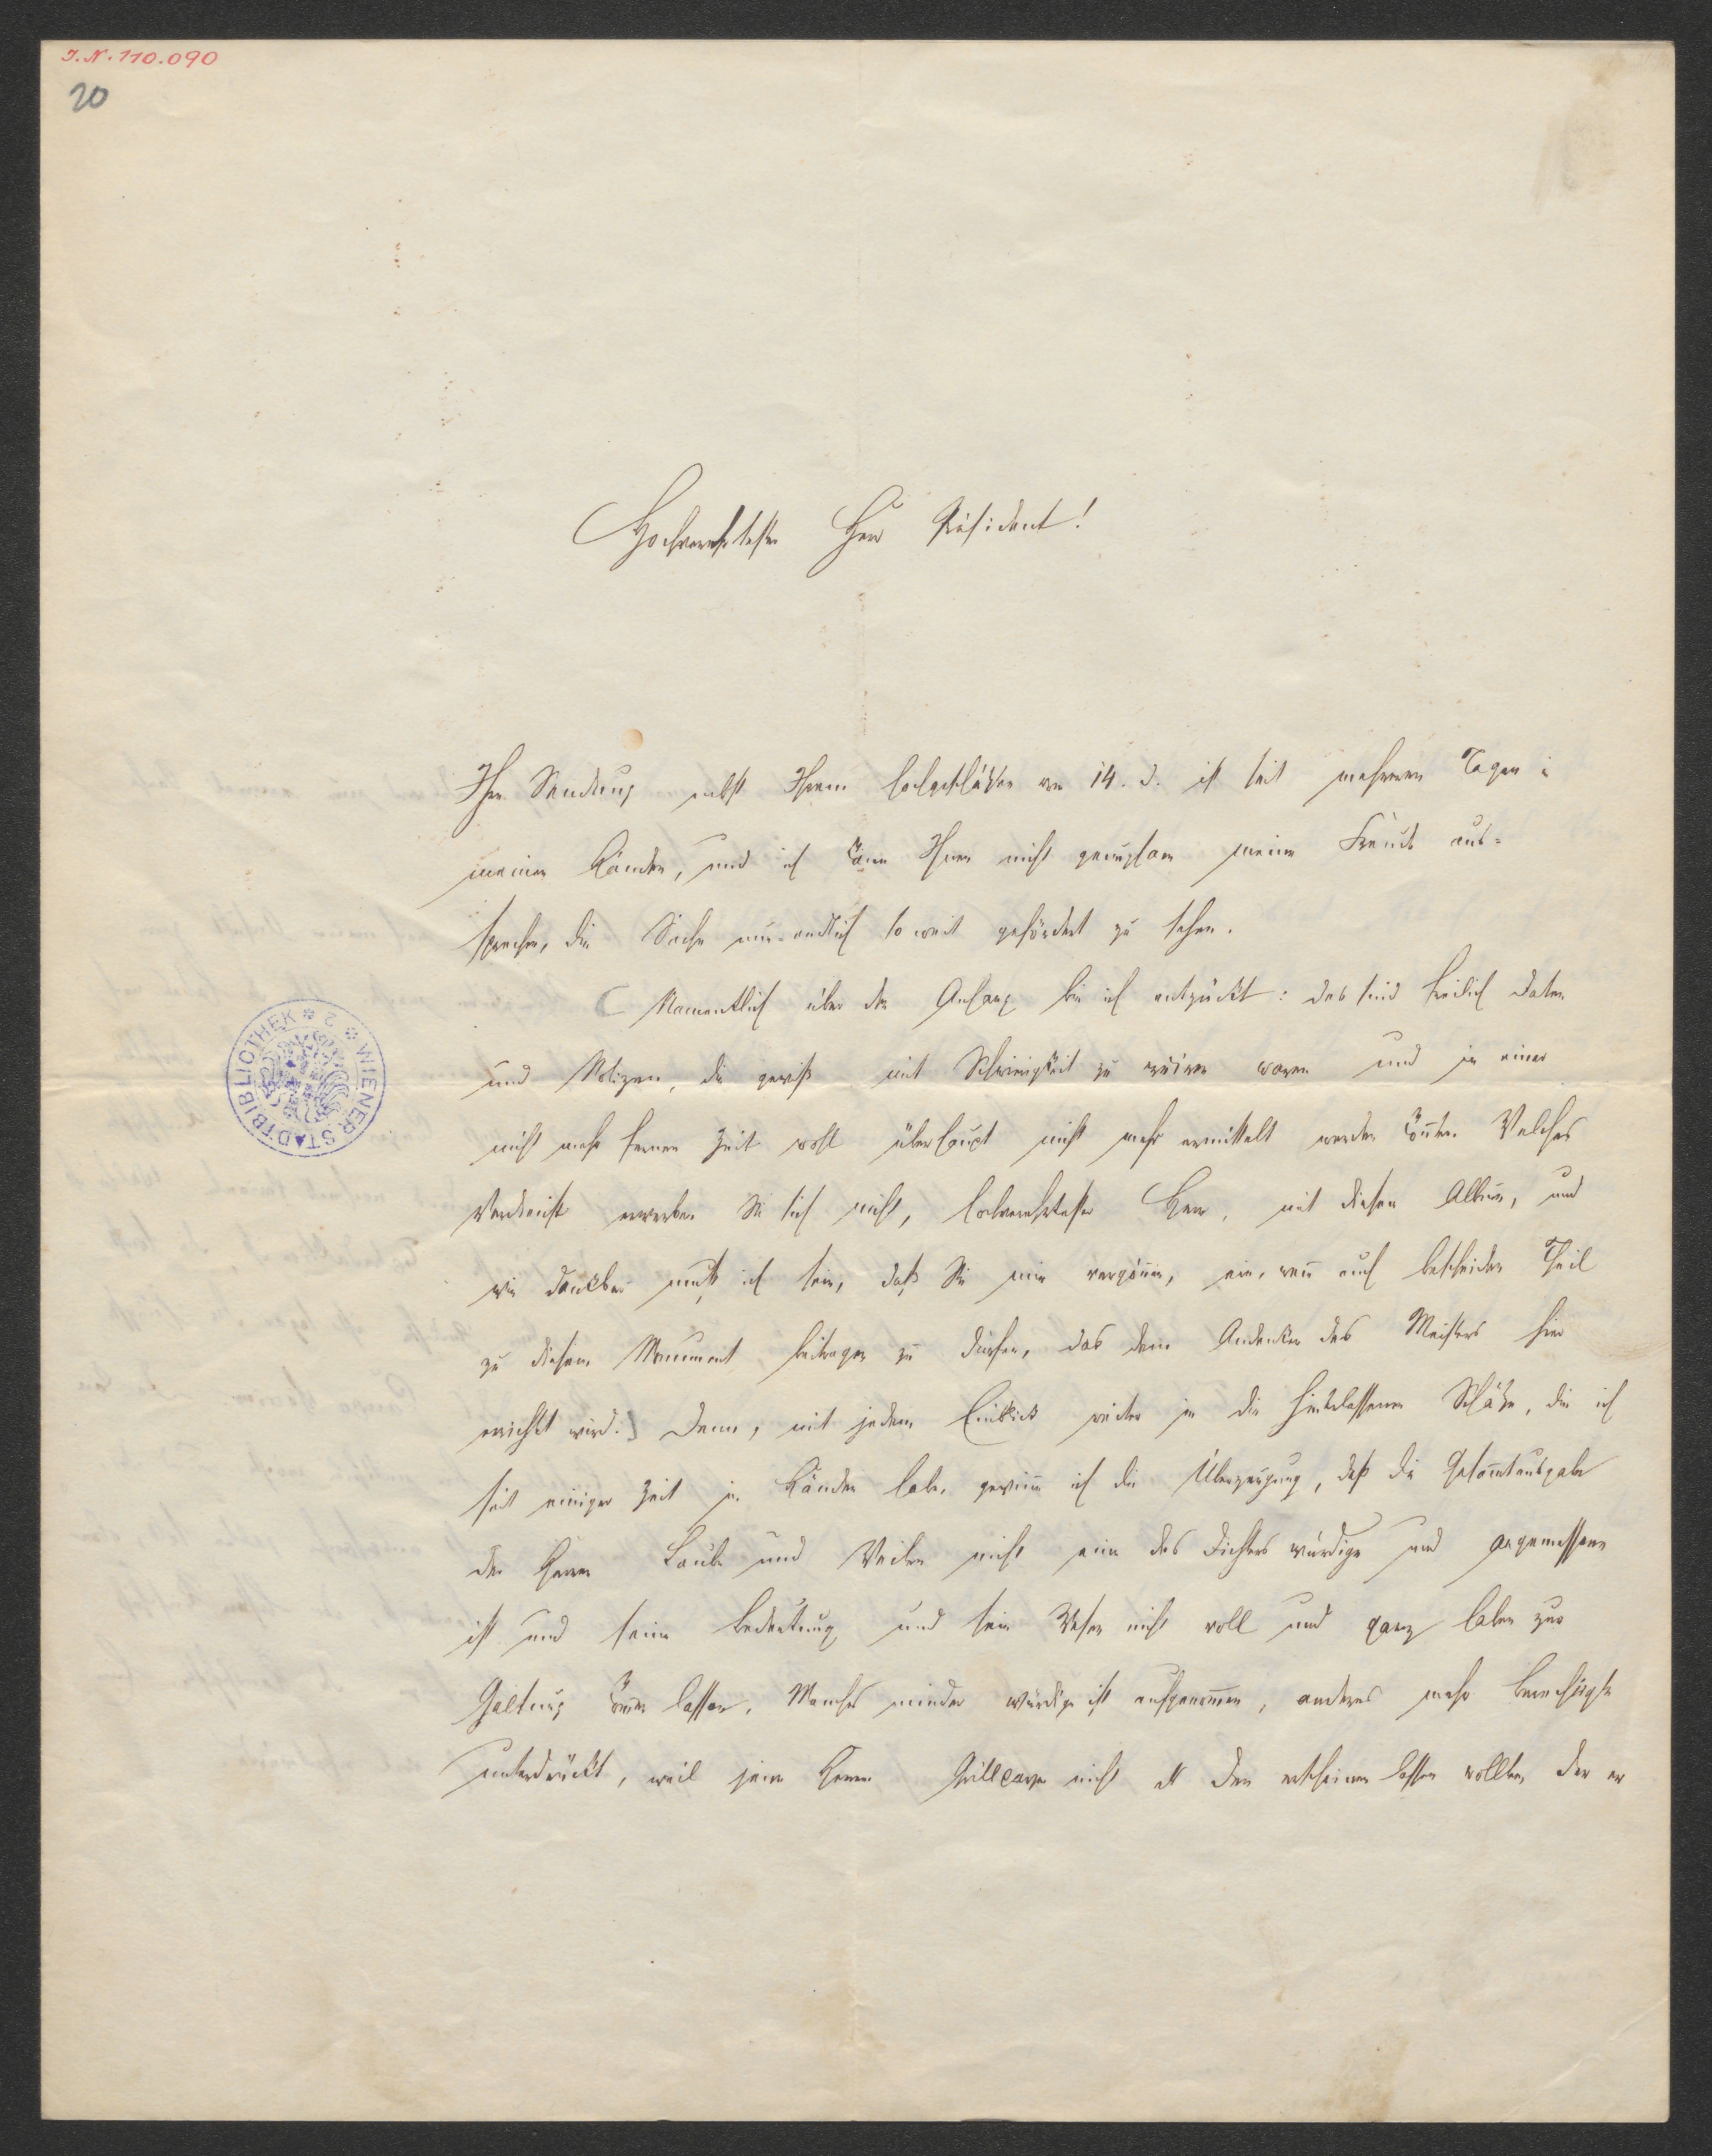 I.N. 110.090
20
Hochverehrtester Herr Präsident!
Ihre Sendung nebst Ihrem hochgeschätzten vom 14. d. ist seit mehreren Tagen in
meinen Händen, und ich kann Ihnen nicht genugsam meine Freude aus-
sprechen, die Sache nun endlich so weit gefördert zu sehen.
Namentlich über den Anhang bin ich entzückt: das sind freilich Daten
und Notizen, die gewiß mit Schwierigkeit zu eruiren waren und in einer
nicht mehr fernen Zeit wohl überhaupt nicht mehr ermittelt werden könnten. Welches
Verdienst erwerben Sie sich nicht, hochverehrtester Herr, mit diesem Album, und
wie dankbar muß ich sein, daß Sie mir vergönnen, ein, wenn auch bescheiden Theil
zu diesem Monument beitragen zu dürfen, das dem Andenken des Meisters hier
errichtet wird. Denn, mit jedem Einblick weiter in die hinterlassenen Schätze, die ich
seit einiger Zeit in Händen habe, gewinne ich die Überzeugung, daß die Gesammtausgabe
der Herren Laube und Weilen nicht eine des Dichters würdige und angemessene
ist und seine Bedeutung und sein Wesen nicht voll und ganz haben zur
Geltung kommen lassen. Manches minder würdige ist aufgenommen, anderes mehr berechtigte
unterdrückt, weil jene Herren Grillparzer nicht als den erscheinen lassen wollten, der er
WIENER STADTBIBLIOTHEK